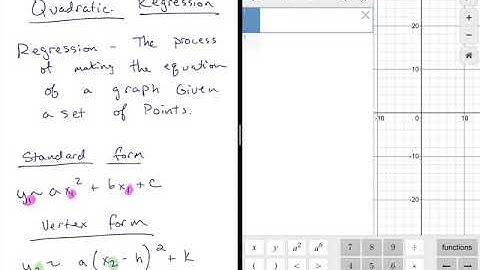 Quadratic Regression
Regression - The process
of making the equation
of a graph Given
a set of Points.
Standard form
y₁ ~ ax₁² + bx₁ + c
Vertex form
y₂ ~ a(x₂ - h)² + k
20
10
-10
-20
0
10
x
y
a²
aᵇ
7
8
9
÷
functions
(
)
<
>
4
5
6
×
←
→